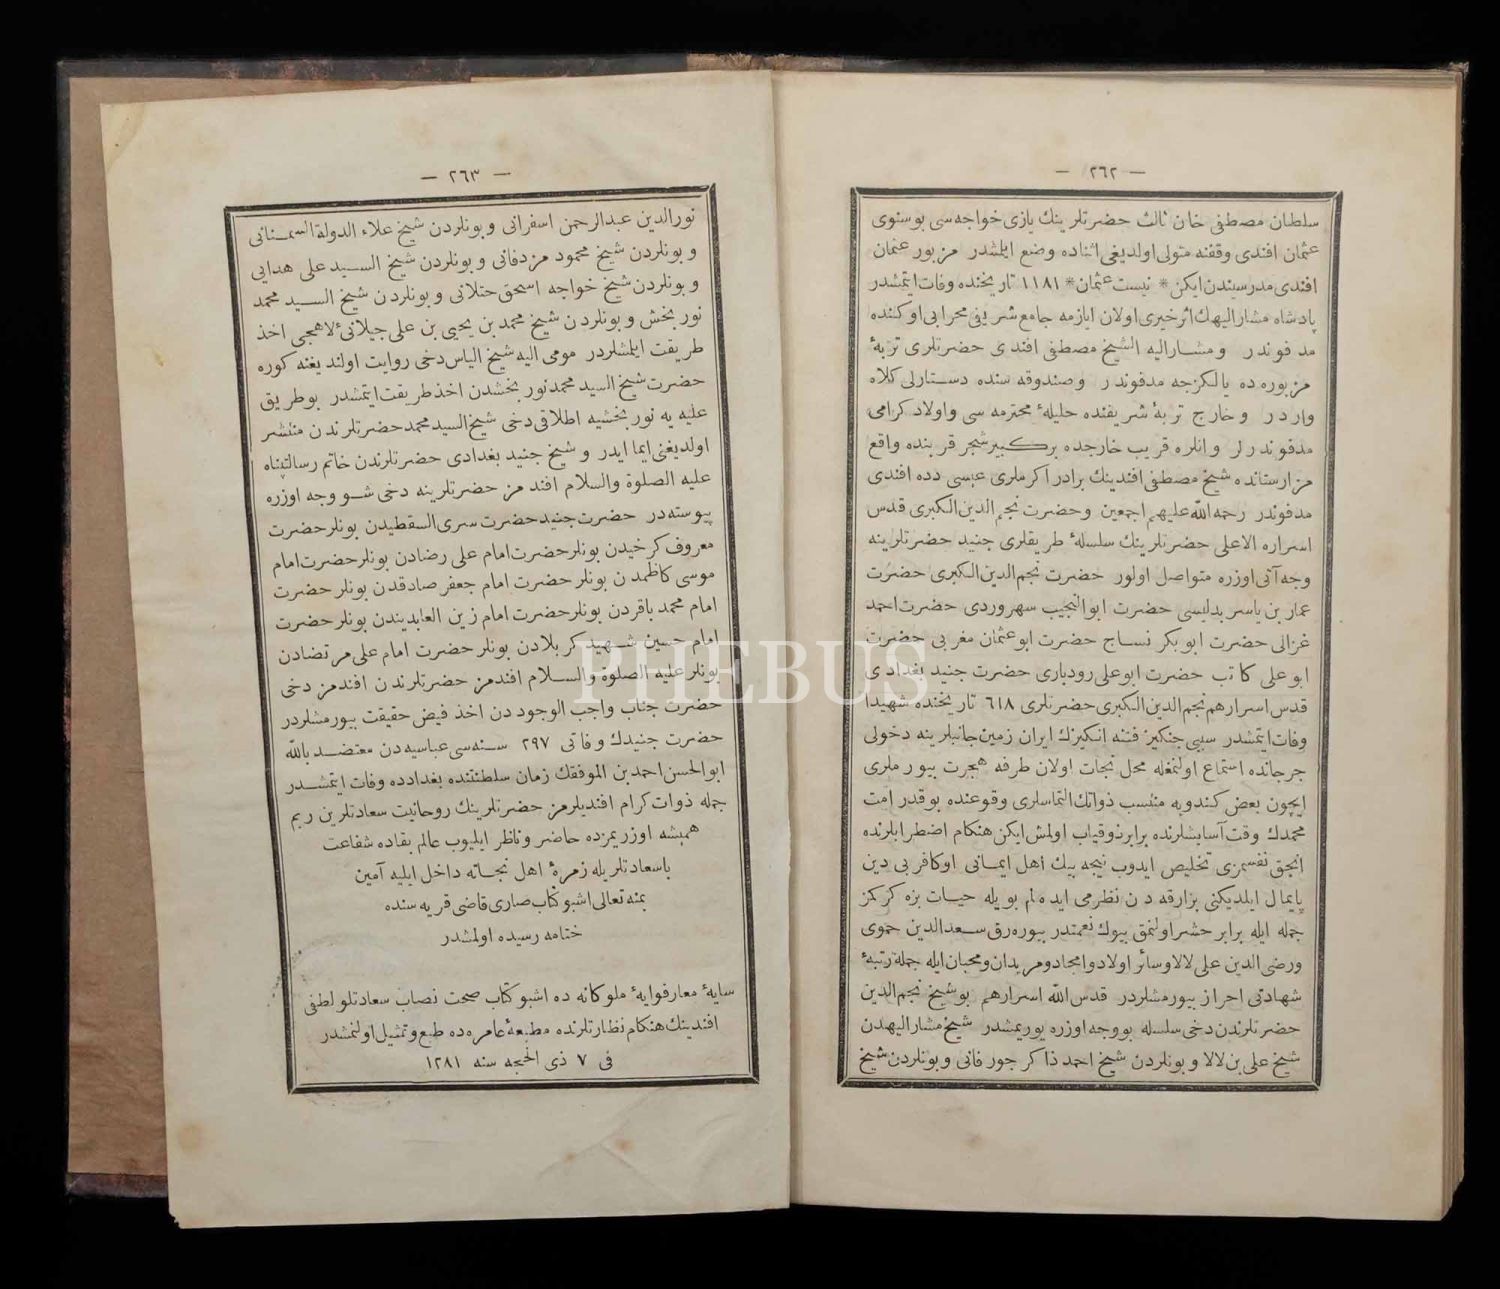 — ٢٦٢ —
سلطان مصطفى خان ثالث حضرتلرينك يازى خواجه سى بوسنوى
عثمان افندى وقفنه متولى اولديغى اثناده وضع ايلمشدر مزبور عثمان
افندى مدرسيندن ايكن * نيست عثمان * ١١٨١ تاريخنده وفات ايتمشدر
پادشاه مشار اليهك اثر خيرى اولان ايازمه جامع شريفى محرابى اوكنده
مدفوندر ومشار اليه الشيخ مصطفى افندى حضرتلرى تربهٔ
مزبوره ده يالكزجه مدفوندر وصندوقه سنده دستارلى كلاه
واردر وخارج تربهٔ شريفنده حليلهٔ محترمه سى واولاد كرامى
مدفوندرلر وانلره قريب خارجده بر كبير شجر قربنده واقع
مزارستانده شيخ مصطفى افندينك برادر اكرملرى عيسى دده افندى
مدفوندر رحمة الله عليهم اجمعين وحضرت نجم الدين الكبرى قدس
اسراره الاعلى حضرتلرينك سلسلهٔ طريقلرى جنيد حضرتلرينه
وجه آتى اوزره متواصل اولور حضرت نجم الدين الكبرى حضرت
عمار بن ياسر بدليسى حضرت ابو النجيب سهروردى حضرت احمد
غزالى حضرت ابو بكر نساج حضرت ابو عثمان مغربى حضرت
ابو على كاتب حضرت ابو على رودبارى حضرت جنيد بغدادى
قدس اسرارهم نجم الدين الكبرى حضرتلرى ٦١٨ تاريخنده شهيدا
وفات ايتمشدر سببى جنكيز فتنه انكيزك ايران زمين جانبلرينه دخولى
جرجانده استماع اولنمغله محل نجات اولان طرفه هجرت بيورملرى
ايچون بعض كندويه منتسب ذواتك التماسلرى وقوعنده بوقدر امت
محمدك وقت آسايشلرنده برابر ذوقياب اولمش ايكن هنكام اضطرابلرنده
انجق نفسمزى تخليص ايدوب نيجه بيك اهل ايمانى اوكافر بى دين
پايمال ايلديكنى بزارقه دن نظرمى ايده لم بويله حيات بزه كركمز
جمله ايله برابر حشر اولنمق بيوك نعمتدر بيوره رق سعد الدين حموى
ورضى الدين على لالا وسائر اولاد وامجاد ومريدان ومحبان ايله جمله رتبهٔ
شهادتى احراز بيورمشلردر قدس الله اسرارهم بو شيخ نجم الدين
حضرتلرندن دخى سلسله بو وجه اوزره يوريمشدر شيخ مشار اليهدن
شيخ على بن لالا و بونلردن شيخ احمد ذاكر جورفانى و بونلردن شيخ
— ٢٦٣ —
نور الدين عبد الرحمن اسفرانى و بونلردن شيخ علاء الدولة السمنانى
و بونلردن شيخ محمود مزدقانى و بونلردن شيخ السيد على همدانى
و بونلردن شيخ خواجه اسحق ختلانى و بونلردن شيخ السيد محمد
نور بخش و بونلردن شيخ محمد بن يحيى بن على جيلانىٔ لاهجى اخذ
طريقت ايلمشلردر مومى اليه شيخ الياس دخى روايت اولنديغنه كوره
حضرت شيخ السيد محمد نور بخشدن اخذ طريقت ايتمشدر بو طريق
عليه يه نور بخشيه اطلاقى دخى شيخ السيد محمد حضرتلرندن منتشر
اولديغنى ايما ايدر و شيخ جنيد بغدادى حضرتلرندن خاتم رسالتپناه
عليه الصلوة والسلام افندمز حضرتلرينه دخى شو وجه اوزره
پيوسته در حضرت جنيد حضرت سرى السقطيدن بونلر حضرت
معروف كرخيدن بونلر حضرت امام على رضادن بونلر حضرت امام
موسى كاظمدن بونلر حضرت امام جعفر صادقدن بونلر حضرت
امام محمد باقردن بونلر حضرت امام زين العابديندن بونلر حضرت
امام حسين شهيد كربلادن بونلر حضرت امام على مرتضادن
بونلر عليه الصلوة والسلام افندمز حضرتلرندن افندمز دخى
حضرت جناب واجب الوجود دن اخذ فيض حقيقت بيورمشلردر
حضرت جنيدك وفاتى ٢٩٧ سنه سى عباسيه دن معتضد بالله
ابو الحسن احمد بن الموفقك زمان سلطنتنده بغدادده وفات ايتمشدر
جمله ذوات كرام افنديلرمز حضرتلرينك روحانيت سعادتلرين ربم
هميشه اوزريمزده حاضر و ناظر ايليوب عالم بقاده شفاعت
باسعادتلريله زمرهٔ اهل نجاته داخل ايليه آمين
بمنه تعالى اشبو كتاب صارى قاضى قريه سنده
ختامه رسيده اولمشدر
سايهٔ معارفوايهٔ ملوكانه ده اشبو كتاب صحت نصاب سعادتلو لطفى
افندينك هنكام نظارتلرنده مطبعهٔ عامره ده طبع و تمثيل اولنمشدر
فى ٧ ذى الحجه سنه ١٢٨١
PHEBUS